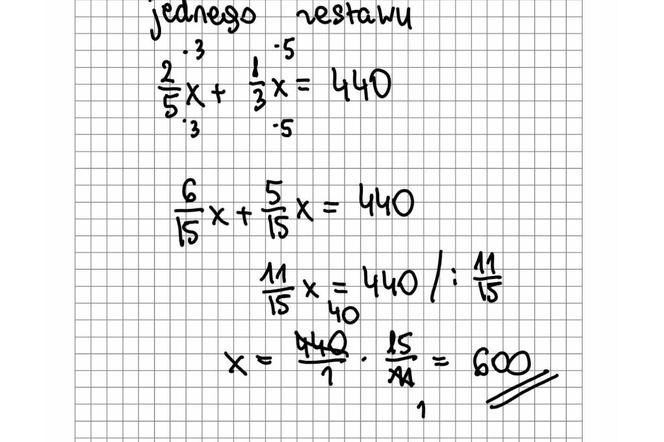 jednego zestawu
·3 ·5
2/5 x + 1/3 x = 440
·3 ·5
6/15 x + 5/15 x = 440
11/15 x = 440 / : 11/15
40
x = 440/1 · 15/11 = 600
1